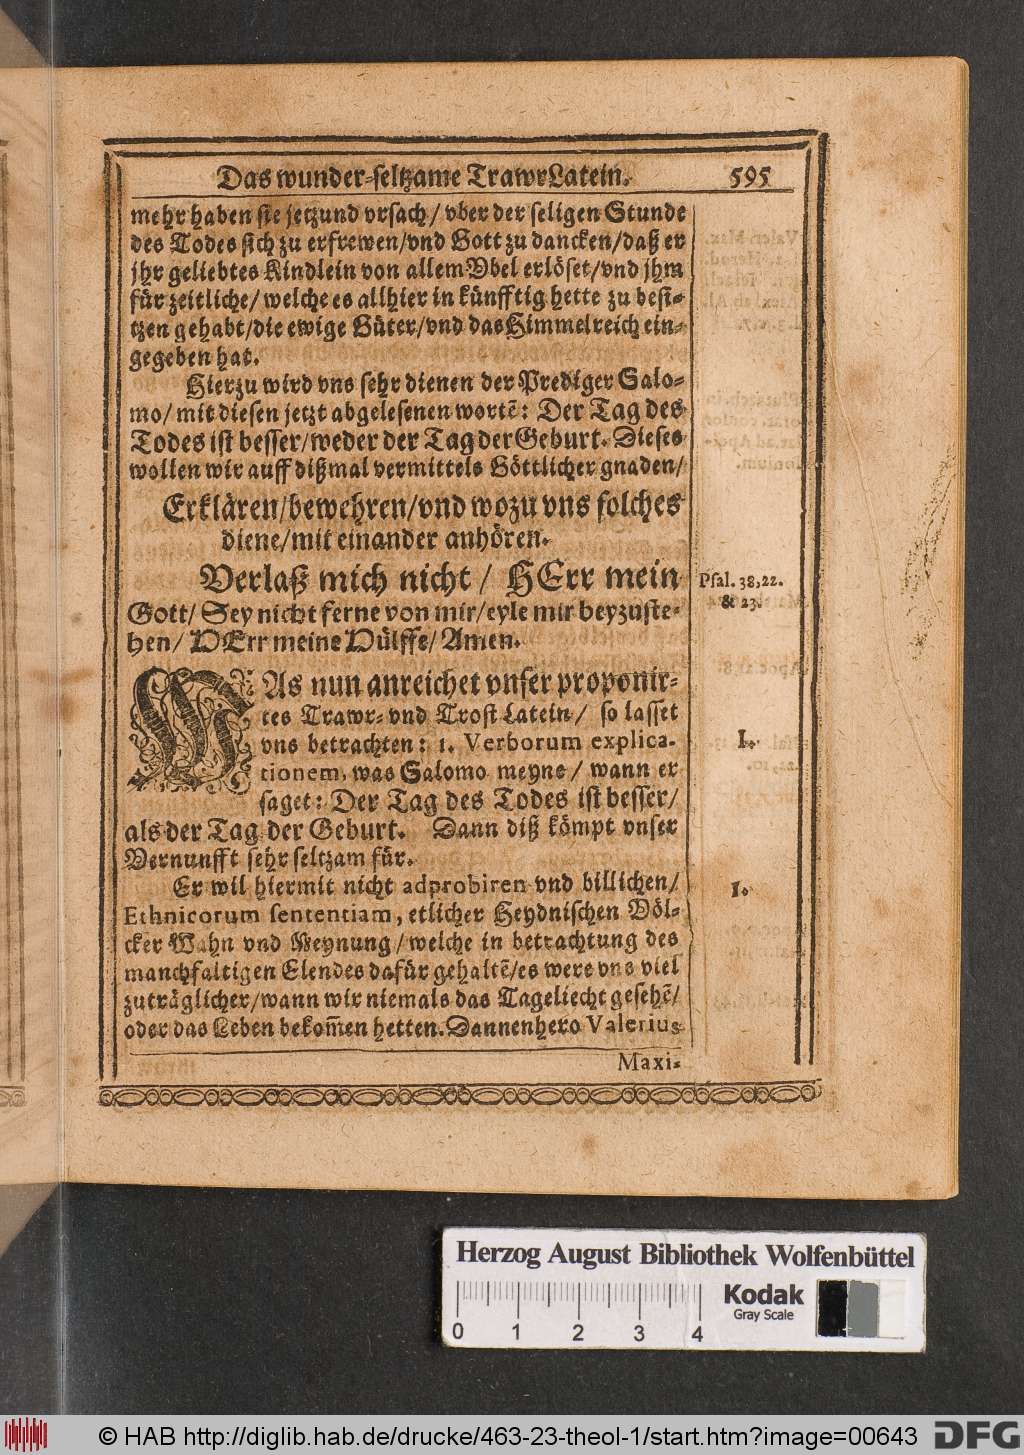 Das wunder-seltzame TrawrLatein. 595
mehr haben sie jetzund vrsach/ vber der seligen Stunde
des Todes sich zu erfrewen/vnd Gott zu dancken/daß er
jhr geliebtes Kindlein von allem Vbel erlöset/vnd jhm
für zeitliche/ welche es allhier in künfftig hette zu besi-
tzen gehabt/die ewige Güter/vnd das Himmelreich ein-
gegeben hat.
Hierzu wird vns sehr dienen der Prediger Salo-
mo/ mit diesen jetzt abgelesenen wortē: Der Tag des
Todes ist besser/weder der Tag der Geburt. Dieses
wollen wir auff dißmal vermittels Göttlicher gnaden/
Erklären/bewehren/vnd wozu vns solches
diene/mit einander anhören.
Verlaß mich nicht / HErr mein
Gott/ Sey nicht ferne von mir/eyle mir beyzuste-
hen/ HErr meine Hülffe/ Amen.
Psal. 38,22.
& 23.
WAs nun anreichet vnser proponir-
tes Trawr- vnd Trost Latein/ so lasset
vns betrachten: 1. Verborum explica-
tionem, was Salomo meyne/ wann er
saget: Der Tag des Todes ist besser/
als der Tag der Geburt. Dann diß kömpt vnser
Vernunfft sehr seltzam für.
I.
Er wil hiermit nicht adprobiren vnd billichen/
Ethnicorum sententiam, etlicher Heydnischen Völ-
cker Wahn vnd Meynung/welche in betrachtung des
manchfaltigen Elendes dafür gehaltē/es were vns viel
zuträglicher/wann wir niemals das Tageliecht gesehē/
oder das Leben bekom̄en hetten. Dannenhero Valerius
1.
Maxi-
Herzog August Bibliothek Wolfenbüttel
Kodak
Gray Scale
0 1 2 3 4
© HAB http://diglib.hab.de/drucke/463-23-theol-1/start.htm?image=00643
DFG